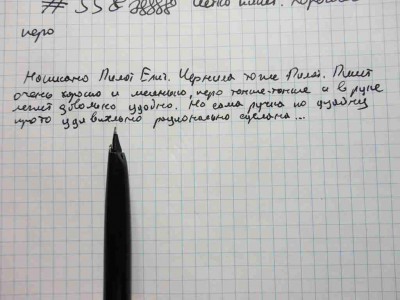 # 558 легко пишет. Хорошее
перо
Написано Пилот Елит. Чернила тоже Пилот. Пишет
очень хорошо и мягенько, перо тонкое-тонкое и в руке
лежит довольно удобно. Но сама ручка по дизайну
просто удивительно рационально сделана...